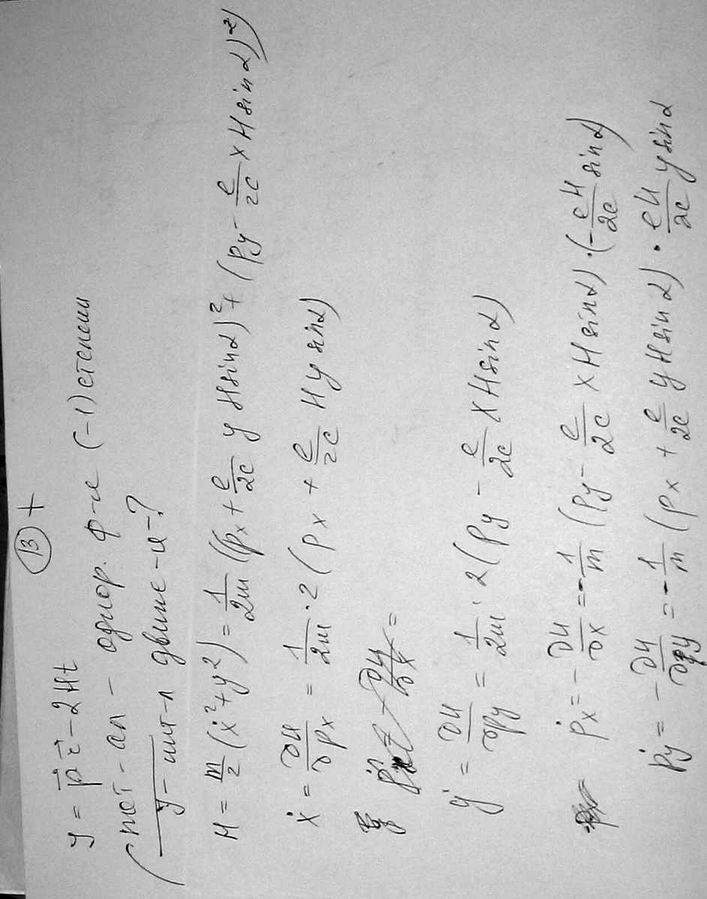 (13) +
y = p⃗ r⃗ - 2Ht
(пот-ал - однор. ф-и (-1) степени
y - инт-л движ-я - ?
H = m/2 (ẋ² + y²) = 1/2m ((px + e/2c y H sin α)² + (py - e/2c x H sin α)²)
ẋ = ∂H/∂px = 1/2m · 2 (px + e/2c H y sin α)
ẏ = ∂H/∂py = 1/2m · 2 (py - e/2c x H sin α)
ṗx = - ∂H/∂x = - 1/m (py - e/2c x H sin α) · (- eH/2c sin α)
ṗy = - ∂H/∂y = - 1/m (px + e/2c y H sin α) · eH/2c y sin α